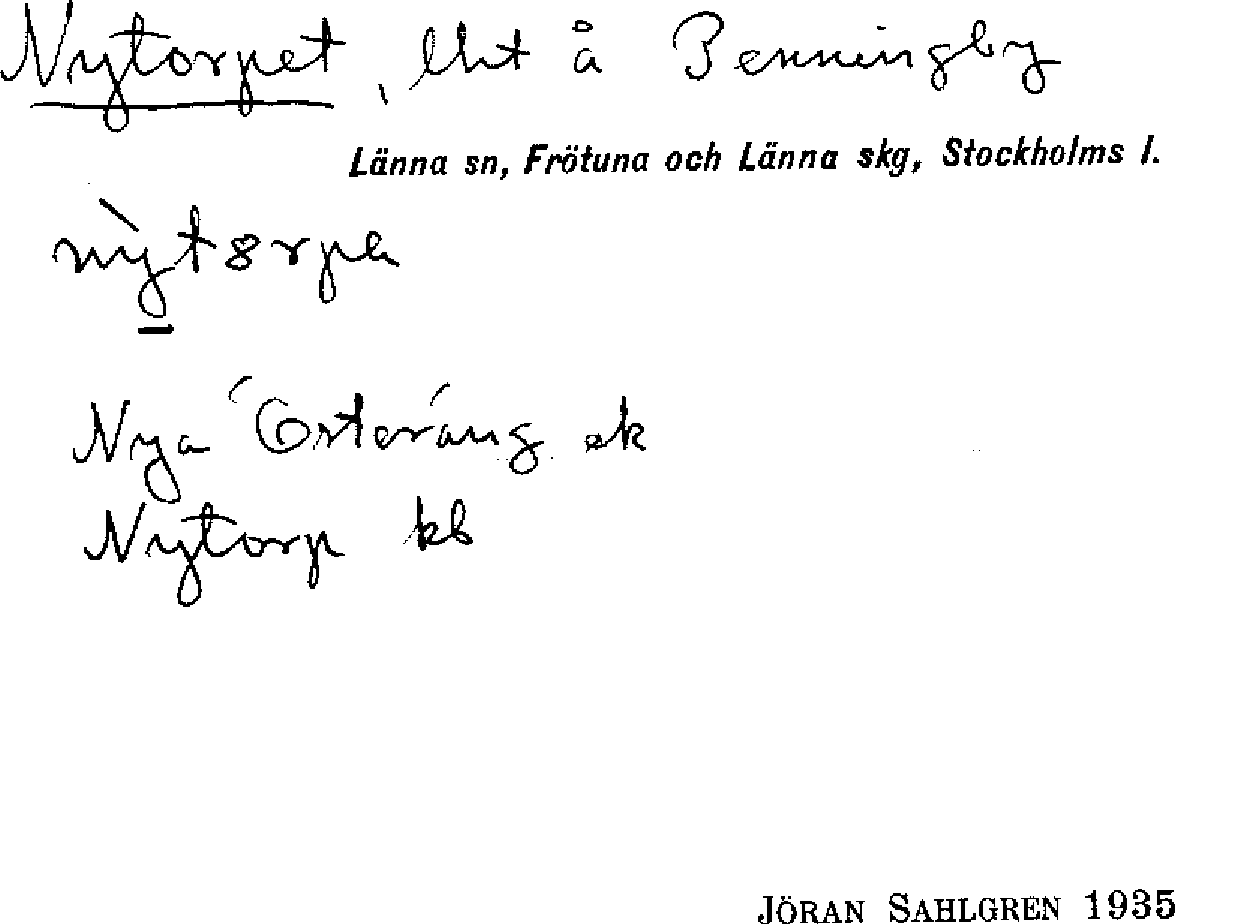 Nytorpet, lht å Penningby
Länna sn, Frötuna och Länna skg, Stockholms l.
Nya Österäng ek
Nytorp kb
JÖRAN SAHLGREN 1935